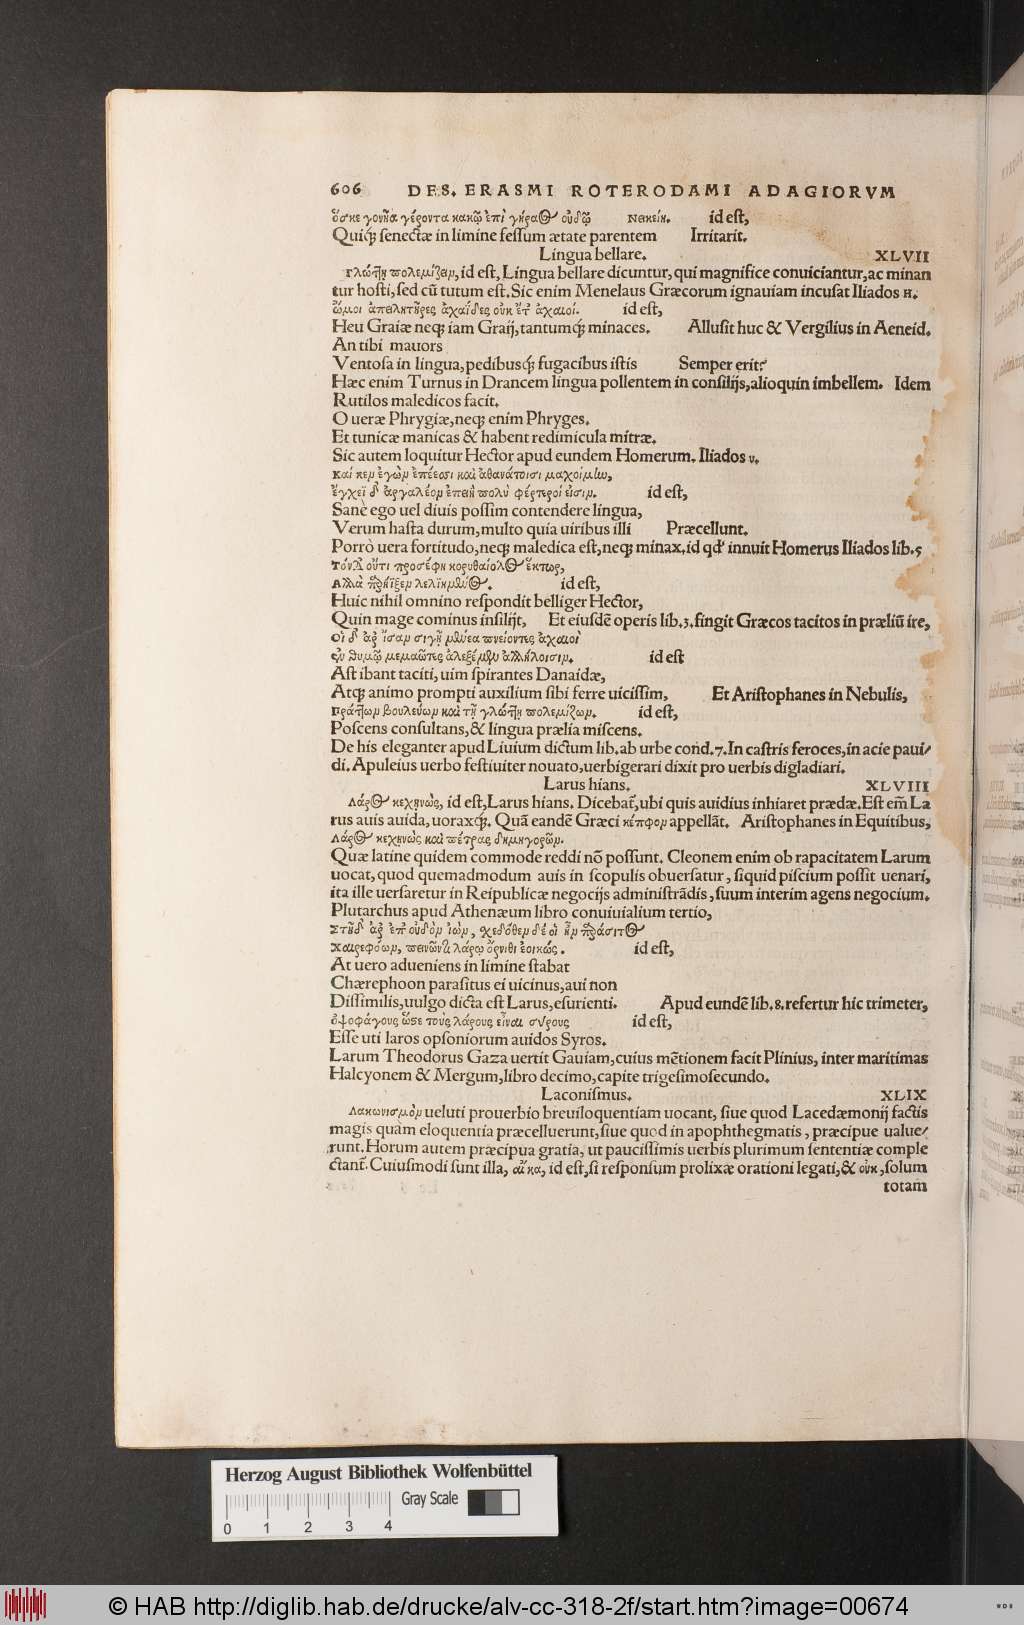 606 DES. ERASMI ROTERODAMI ADAGIORVM
ὅσκε γονῆα γέροντα κακῷ ἐπὶ γήραος οὐδῷ Νεικείη. id est,
Quiq́; senectæ in limine fessum ætate parentem Irritarit.
Lingua bellare. XLVII
Γλώττῃ πολεμίζειν, id est, Lingua bellare dicuntur, qui magnifice conuiciantur, ac minan
tur hosti, sed cū tutum est. Sic enim Menelaus Græcorum ignauiam incusat Iliados η.
ὤμοι ἀπειλητῆρες ἀχαιΐδες οὐκ ἔτ᾽ ἀχαιοί. id est,
Heu Graiæ neq; iam Graij, tantumq́; minaces. Allusit huc & Vergilius in Aeneid.
An tibi mauors
Ventosa in lingua, pedibusq́; fugacibus istis Semper erit?
Hæc enim Turnus in Drancem lingua pollentem in consilijs, alioquin imbellem. Idem
Rutilos maledicos facit.
O ueræ Phrygiæ, neq; enim Phryges.
Et tunicæ manicas & habent redimicula mitræ.
Sic autem loquitur Hector apud eundem Homerum. Iliados υ.
Καί κεν ἐγὼν ἐπέεσσι καὶ ἀθανάτοισι μαχοίμην,
ἔγχεϊ δ᾽ ἀργαλέον ἐπειὴ πολὺ φέρτεροί εἰσιν. id est,
Sanè ego uel diuis possim contendere lingua,
Verum hasta durum, multo quia uiribus illi Præcellunt.
Porrò uera fortitudo, neq; maledica est, neq; minax, id qd' innuit Homerus Iliados lib. 5
Τόνδ᾽ οὔτι προσέφη κορυθαίολος ἕκτωρ,
Ἀλλὰ παρήϊξεν λελιημένος. id est,
Huic nihil omnino respondit belliger Hector,
Quin mage cominus insilijt, Et eiusdē operis lib. 3. fingit Græcos tacitos in præliū ire,
Οἱ δ᾽ ἄρ᾽ ἴσαν σιγῇ μένεα πνείοντες ἀχαιοὶ
ἐν θυμῷ μεμαῶτες ἀλεξέμεν ἀλλήλοισιν. id est
Ast ibant taciti, uim spirantes Danaidæ,
Atq; animo prompti auxilium sibi ferre uicissim, Et Aristophanes in Nebulis,
Πράττων βουλεύων καὶ τῇ γλώττῃ πολεμίζων. id est,
Poscens consultans, & lingua prælia miscens.
De his eleganter apud Liuium dictum lib. ab urbe cond. 7. In castris feroces, in acie paui-
di. Apuleius uerbo festiuiter nouato, uerbigerari dixit pro uerbis digladiari.
Larus hians. XLVIII
Λάρος κεχηνὼς, id est, Larus hians. Dicebat̄, ubi quis auidius inhiaret prædæ. Est em̄ La
rus auis auida, uoraxq́;. Quā eandē Græci κέπφον appellāt. Aristophanes in Equitibus,
Λάρος κεχηνὼς καὶ πέτρας δημηγορῶν.
Quæ latine quidem commode reddi nō possunt. Cleonem enim ob rapacitatem Larum
uocat, quod quemadmodum auis in scopulis obuersatur, siquid piscium possit uenari,
ita ille uersaretur in Reipublicæ negocijs administrādis, suum interim agens negocium.
Plutarchus apud Athenæum libro conuiuialium tertio,
Στῆδ᾽ ἄρ᾽ ἐπ᾽ οὐδὸν ἰὼν, σχεδόθεν δέ οἱ ἦν παράσιτος
Χαιρεφόων, πεινῶντι λάρῳ ὄρνιθι ἐοικώς. id est,
At uero adueniens in limine stabat
Chærephoon parasitus ei uicinus, aui non
Dissimilis, uulgo dicta est Larus, esurienti. Apud eundē lib. 8. refertur hic trimeter,
ὀψοφάγους ὥστε τοὺς λάρους εἶναι σύρους id est,
Esse uti laros opsoniorum auidos Syros.
Larum Theodorus Gaza uertit Gauiam, cuius mētionem facit Plinius, inter maritimas
Halcyonem & Mergum, libro decimo, capite trigesimosecundo.
Laconismus. XLIX
Λακωνισμὸν ueluti prouerbio breuiloquentiam uocant, siue quod Lacedæmonij factis
magis quàm eloquentia præcelluerunt, siue quod in apophthegmatis, præcipue ualue-
runt. Horum autem præcipua gratia, ut paucissimis uerbis plurimum sententiæ comple
ctant̄. Cuiusmodi sunt illa, αἴκα, id est, si responsum prolixæ orationi legati, & οὐκ, solum
totam
Herzog August Bibliothek Wolfenbüttel
Gray Scale
0 1 2 3 4
© HAB http://diglib.hab.de/drucke/alv-cc-318-2f/start.htm?image=00674